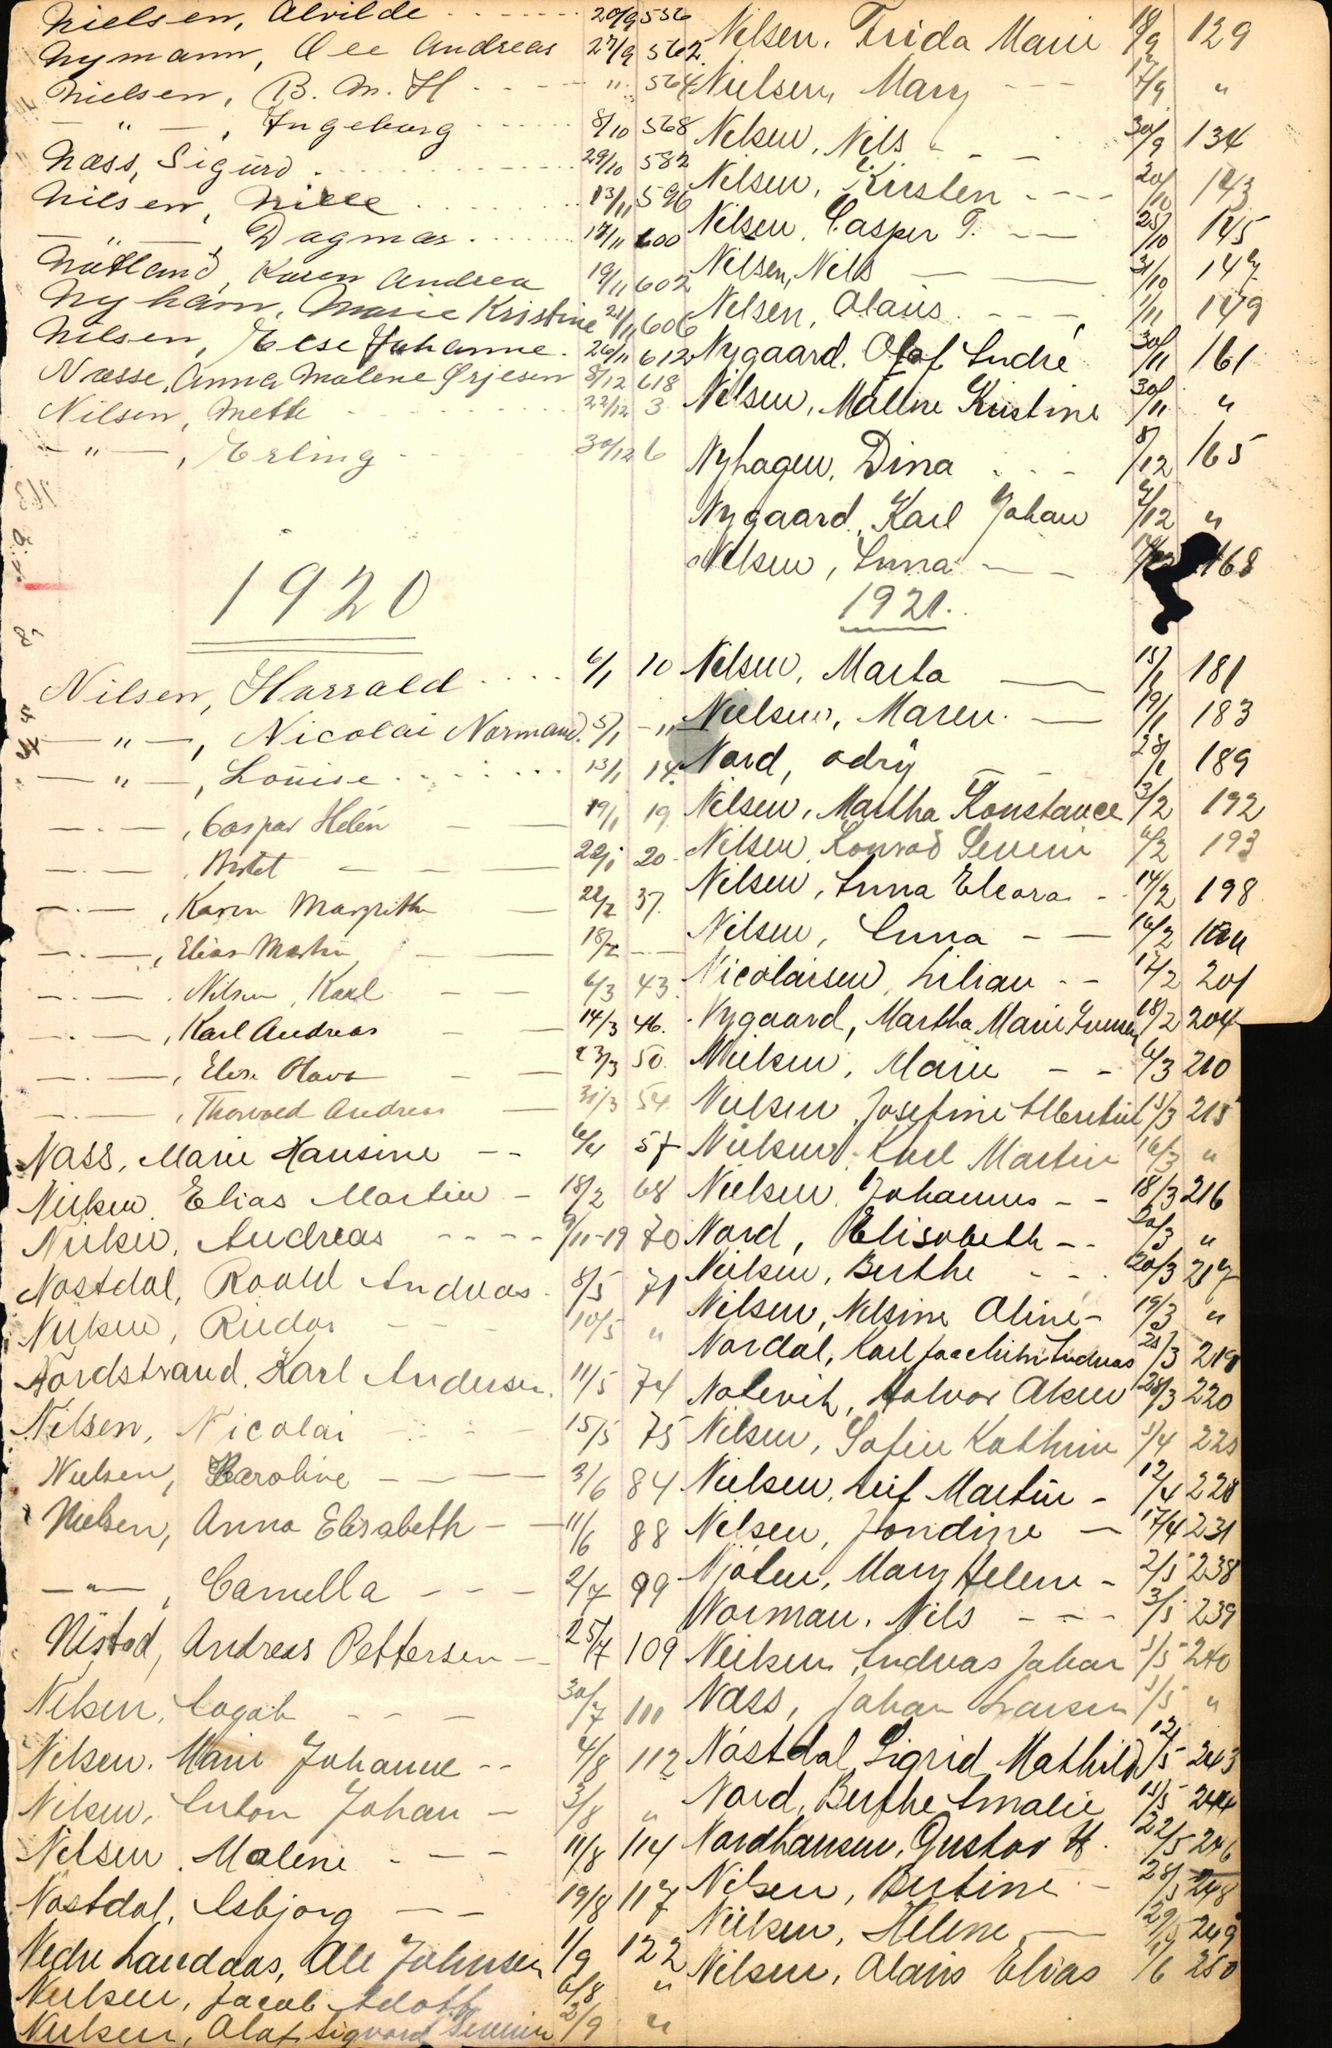 Nielsen, Alvilde 20/9 556
Nymann, Ole Andreas 27/9 562
Nielsen, B. M. H " 564
— " —, Ingeborg 8/10 568
Næss, Sigurd 29/10 582
Nilsen, Nille 13/11 596
— " —, Dagmar 17/11 600
Nätland, Karen Andrea 19/11 602
Nyham, Marie Kristine 21/11 606
Nilsen, Else Johanne 26/11 612
Næsse, Anna Malene Ørjesen 8/12 618
Nilsen, Mette 22/12 3
— " —, Erling 30/12 6
1920
Nilsen, Harrald 6/1 10
— " —, Nicolai Normand 5/1 - " -
— " —, Louise 13/1 14
— . —, Caspar Helén 19/1 19
— . —, Bertet 22/1 20
— . —, Karen Margrithe 22/2 37
— . —, Elias Martin 18/2 — . —
— . —, Nilsen, Karl 6/3 43
— . —, Karl Andreas 14/3 46
— . —, Elise Olava 23/3 50
— . —, Thorvald Andreas 31/3 54
Nass, Marie Hansine 6/4 57
Nielsen, Elias Martin 18/2 68
Nielsen, Andreas 9/11-19 70
Nostdal, Roald Andreas 8/5 71
Nielsen, Reidar 10/5 "
Nordstrand, Karl Andersen 11/5 74
Nilsen, Nicolai 15/5 75
Nielsen, Karoline 3/6 84
Nielsen, Anna Elisabeth 11/6 88
— " —, Camilla 2/7 99
Nistad, Andreas Pettersen 25/7 109
Nilsen, Cagah 30/7 111
Nilsen, Marie Johanne 4/8 112
Nilsen, Anton Johan 3/8 "
Nilsen, Malene 11/8 114
Nostdal, Asbjorg 19/8 117
Nedre Landaas, Ole Johnsen 1/9 122
Nielsen, Jacob Adolf 6/8 "
Nielsen, Olaf Sigvard Severin 2/9 "
Nilsen, Frida Marie 18/9 129
Nielsen, Mary 17/9 "
Nilsen, Nils 30/9 134
Nilsen, Kirsten 20/10 143
Nilsen, Casper T. 25/10 145
Nilsen, Nils 31/10 147
Nilsen, Olaus 1/11 149
Nygaard, Olaf André 30/11 161
Nilsen, Malene Kristine 30/11 "
Nyhagen, Dina 8/12 165
Nygaard, Karl Johan 7/12 "
Nilsen, Anna 168
1921.
Nilsen, Marta 15/1 181
Nielsen, Maren 19/1 183
Nord, Odny 28/1 189
Nilsen, Martha Konstance 3/2 192
Nilsen, Konrad Severin 6/2 193
Nilsen, Anna Eleora 14/2 198
Nilsen, Anna 16/2
Nicolaisen, Lilian 17/2 201
Nygaard, Martha Marie 18/2 204
Nielsen, Marie 6/3 210
Nielsen, Josefine Albertine 15/3 215
Nielsen, Karl Martin 16/3 "
Nielsen, Johannes 18/3 216
Nord, Elisabeth 20/3 "
Nielsen, Berthe 20/3 217
Nilsen, Nilsine Oline 19/3 "
Nordal, Karl Joachim Andreas 23/3 219
Notevik, Halvor Olsen 28/3 220
Nilsen, Sofie Kathrine 1/4 225
Nielsen, Leif Martin 12/4 228
Nilsen, Jondine 17/4 231
Njøten, Mary Helene 2/5 238
Norman, Nils 3/5 239
Nielsen, Andreas Johan 5/5 240
Næss, Johan Larsen 5/5 "
Nøstdal, Sigrid Mathilde 12/5 243
Nord, Berthe Amalie 15/5 244
Nordhausen, Gustav H. 22/5 246
Nilsen, Bertine 28/5 248
Nielsen, Helene 29/5 249
Nilsen, Olavis Elias 1/6 250